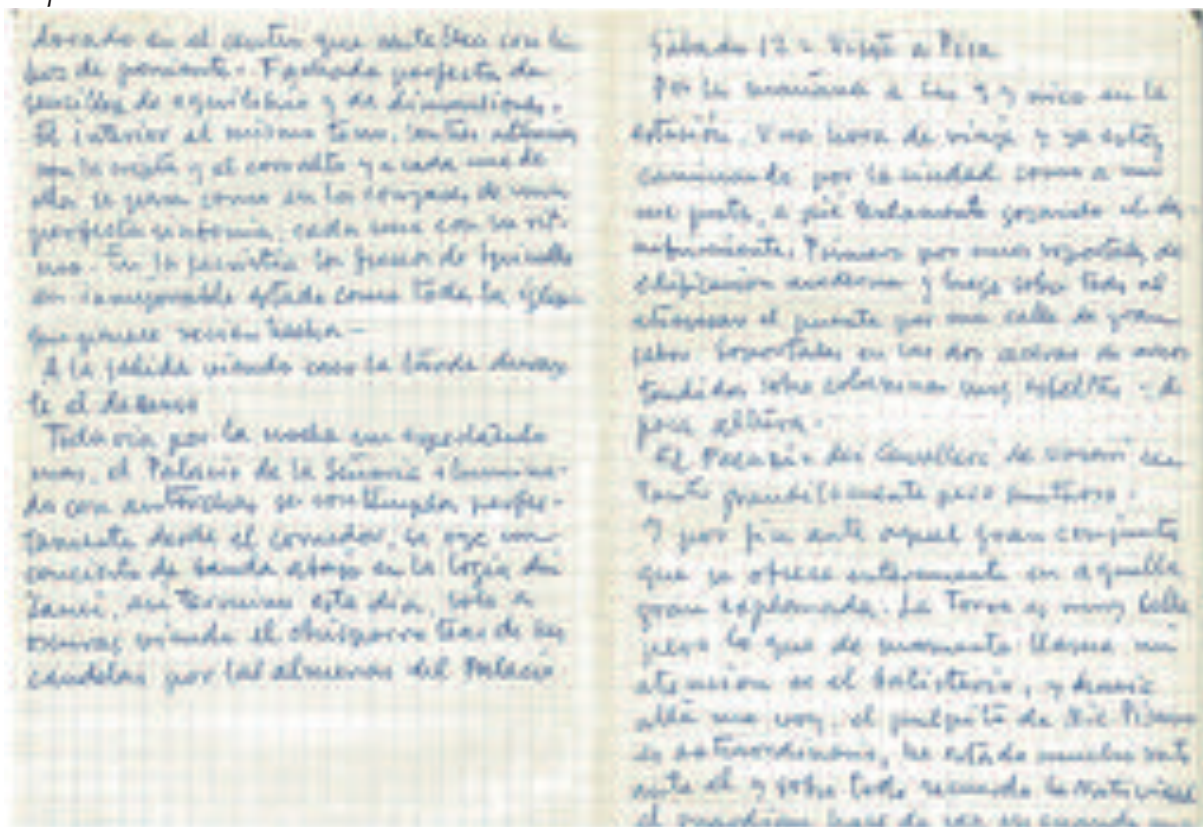 dorado en el centro que centellea con la
luz de poniente. Fachada perfecta de
sencillez de equilibrio y de dimensiones.
El interior el mismo tono, con la
cruz y el alto y a cada una de
ella se como en los de una
perfecta sinfonía, cada una con su rit-
mo. En la sacristía los frescos de Spinello
en inmejorable estado como toda la iglesia
que parece recién hecha.
A la salida viendo caer la tarde
te el descenso
Todavía por la noche un espectáculo
mas, el Palacio de la Señoria ilumina-
do con antorchas se contempla perfec-
tamente desde el comedor, se oye un
concierto de banda abajo en la Logia dei
Lanzi, asi termino este día, solo a
oscuras viendo el chisporroteo de las
candelas por las almenas del Palacio
Sábado 12 = Viaje a Pisa
Por la mañana a las y en la
estación. Una hora de viaje y ya estoy
caminando por la ciudad como a mi
me gusta, a pie lentamente gozando el
Primero por unos de
edificacion moderna y luego sobre todo al
atravesar el puente por una calle de gran
sabor. Soportales en las dos aceras de arcos
tendidos sobre columnas muy esbeltas - de
poca altura.
El Palazzo dei Cavalieri de Vasari un
tanto grandilocuente pero suntuoso.
Y por fin ante aquel gran conjunto
que se ofrece enteramente en aquella
gran esplanada. La Torre es muy bella
pero lo que de momento llama mi
atención es el batisterio, y hacia
allá me voy. el pulpito de Nic. Pisano
es extraordinario, he estado mucho rato
ante él y sobre todo recuerdo la Natividad